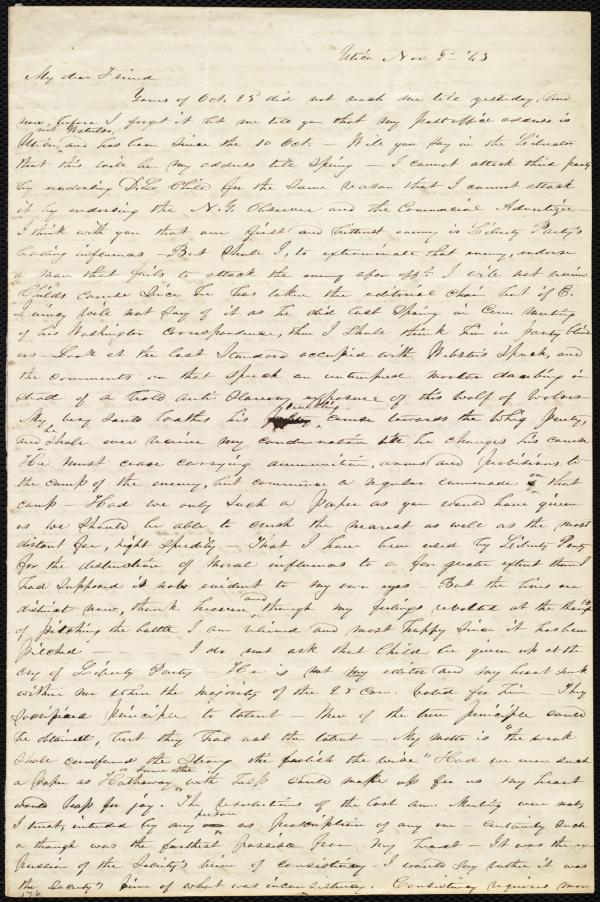 Utica Nov. 9th '43
My dear Friend
Yours of Oct. 25th did not reach me till yesterday, and
now, before I forget it let me tell you that my post office address is
Utica, not Waterloo, and has been since the 10 Oct. — Will you say in the Liberator
that this will be my address till Spring — I cannot attack third party
by endorsing D. L. Child for the same reason that I cannot attack
it by endorsing the N. Y. Observer and the Commercial Advertizer —
I think with you that our first and bitterest enemy is Liberty Party's
leading influences — But shall I, to exterminate that enemy, endorse
a man that fails to attack the enemy
Childs course since he has taken the editorial chair but if E.
Quincy will not say of it as he did last Spring in Com. meeting
of his Washington Correspondence, then I shall think him in party blind
as — Look at the last Standard occupied with Webster's Speech, and
the comments on that speech an
stead of a bold anti slavery exposure of this wolf of wolves
My very soul loathes his truckling course towards the Whig Party,
and he shall ever receive my condemnation till he changes his course
He must cease carrying ammunition, arms and provisions to
the camp of the enemy, but commence a regular cannonade on that
camp — Had we only such a paper as you would have given
us we should be able to crush the nearest as well as the most
distant foe, right speedily — That I have been used by Liberty Party
for the destruction of moral influences to a far greater extent than I
had supposed is now evident to my own eyes — But the lines are
distinct now, thank heaven and though my feelings revolted at the thought
of pitching the battle I am relieved and most happy since it has been
pitched — I do not ask that Child be given up at the
cry of Liberty Party He is not my editor and my heart sunk
within me when the majority of the Ex Com. voted for him — They
sacrificed principle to talent — Men of the true principle could
be obtained, but they had not the talent — My motto is "the weak
shall confound the strong the foolish the wise" Had we even such
a paper as Hathaway with some other help could make up for us my heart
would leap for joy. The resolutions of the last ann. Meeting were not,
I trust, intended by any person as proscription of any one certainly such
a though was the farthest possible from my heart — It was the ex
pression of the Society's view of consistency — I would say rather it was
the Society's view of what was inconsistency. Consistency requires more